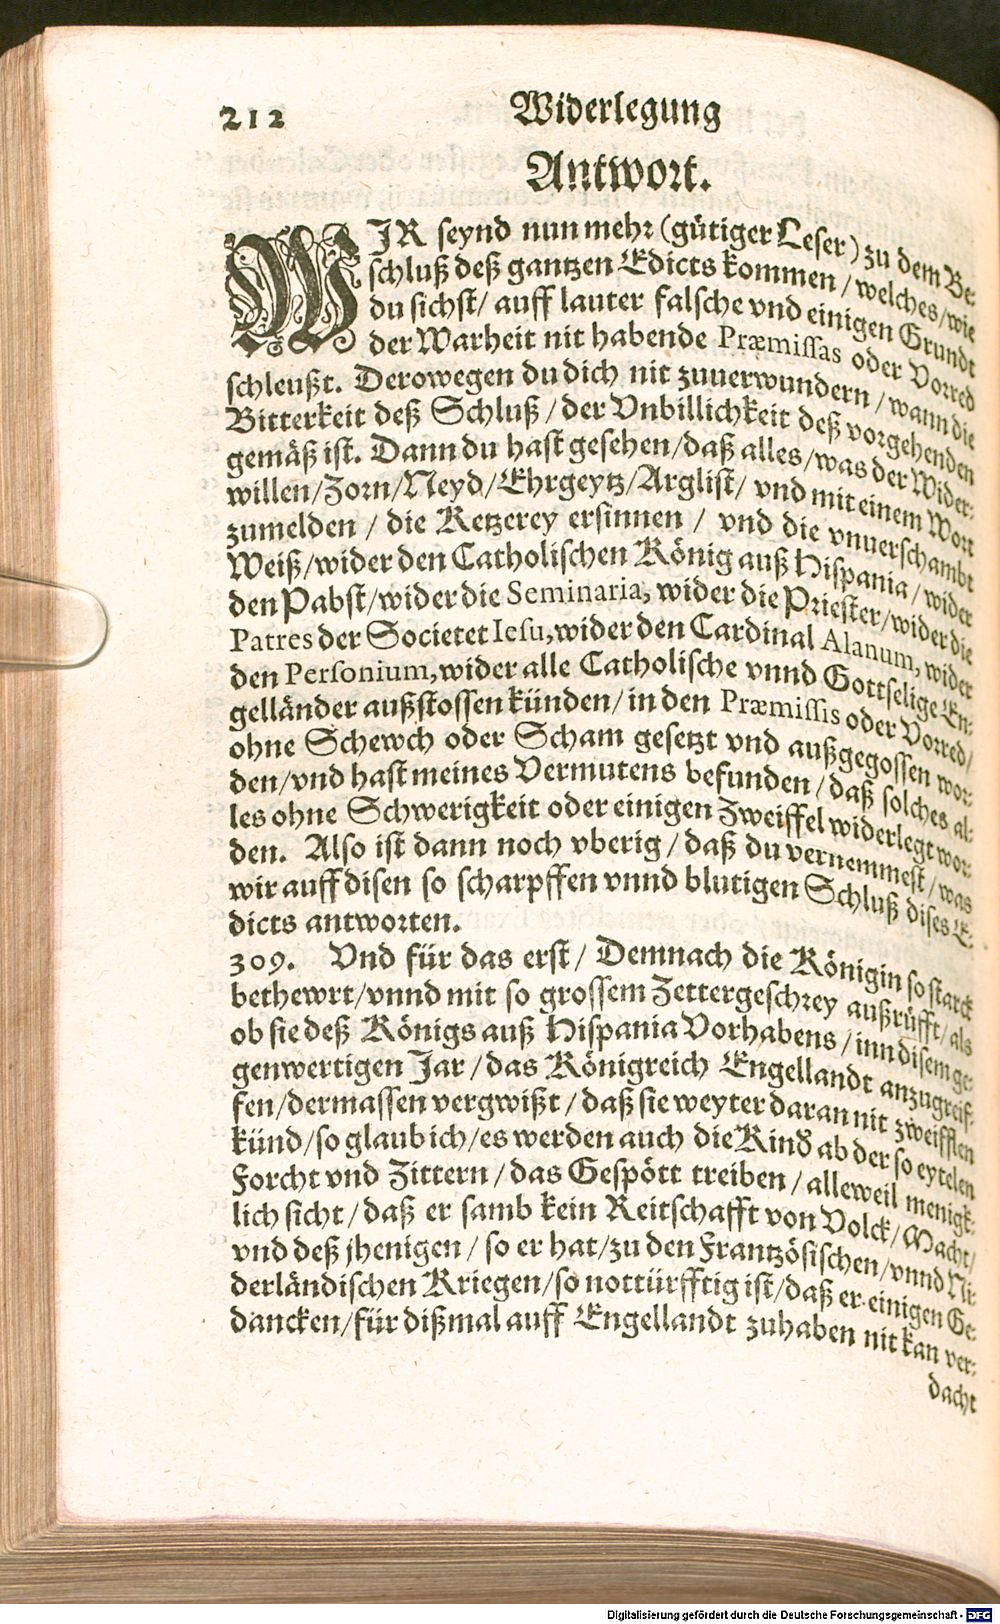 212 Widerlegung
Antwort.
WJR seynd nun mehr (gütiger Leser) zu dem Be-
schluß deß gantzen Edicts kommen / welches / wie
du sichst / auff lauter falsche vnd einigen Grundt
der Warheit nit habende Præmissas oder Vorred
schleußt. Derowegen du dich nit zuuerwundern / wann die
Bitterkeit deß Schluß / der Vnbillichkeit deß vorgehenden
gemäß ist. Dann du hast gesehen / daß alles / was der Wider-
willen / Zorn / Neyd / Ehrgeytz / Arglist / vnd mit einem Wort
zumelden / die Ketzerey ersinnen / vnd die vnuerschambt
Weiß / wider den Catholischen König auß Hispania / wider
den Pabst / wider die Seminaria, wider die Priester / wider die
Patres der Societet Iesu, wider den Cardinal Alanum, wider
den Personium, wider alle Catholische vnnd Gottselige En-
gelländer außstossen künden / in den Præmissis oder Vorred /
ohne Schewch oder Scham gesetzt vnd außgegossen wor-
den / vnd hast meines Vermutens befunden / daß solches al-
les ohne Schwerigkeit oder einigen Zweiffel widerlegt wor-
den. Also ist dann noch vberig / daß du vernemmest / was
wir auff disen so scharpffen vnnd blutigen Schluß dises E-
dicts antworten.
309. Vnd für das erst / Demnach die Königin so starck
bethewrt / vnnd mit so grossem Zettergeschrey außrüfft / als
ob sie deß Königs auß Hispania Vorhabens / inn disem ge-
genwertigen Jar / das Königreich Engellandt anzugreif-
fen / dermassen vergwißt / daß sie weyter daran nit zweifflen
künd / so glaub ich / es werden auch die Kind ab der so eytelen
Forcht vnd Zittern / das Gespött treiben / alleweil menigk-
lich sicht / daß er samb kein Reitschafft von Volck / Macht /
vnd deß jhenigen / so er hat / zu den Frantzösischen / vnnd Ni-
derländischen Kriegen / so nottürfftig ist / daß er einigen Ge-
dancken / für dißmal auff Engellandt zuhaben nit kan ver-
dacht
Digitalisierung gefördert durch die Deutsche Forschungsgemeinschaft - DFG